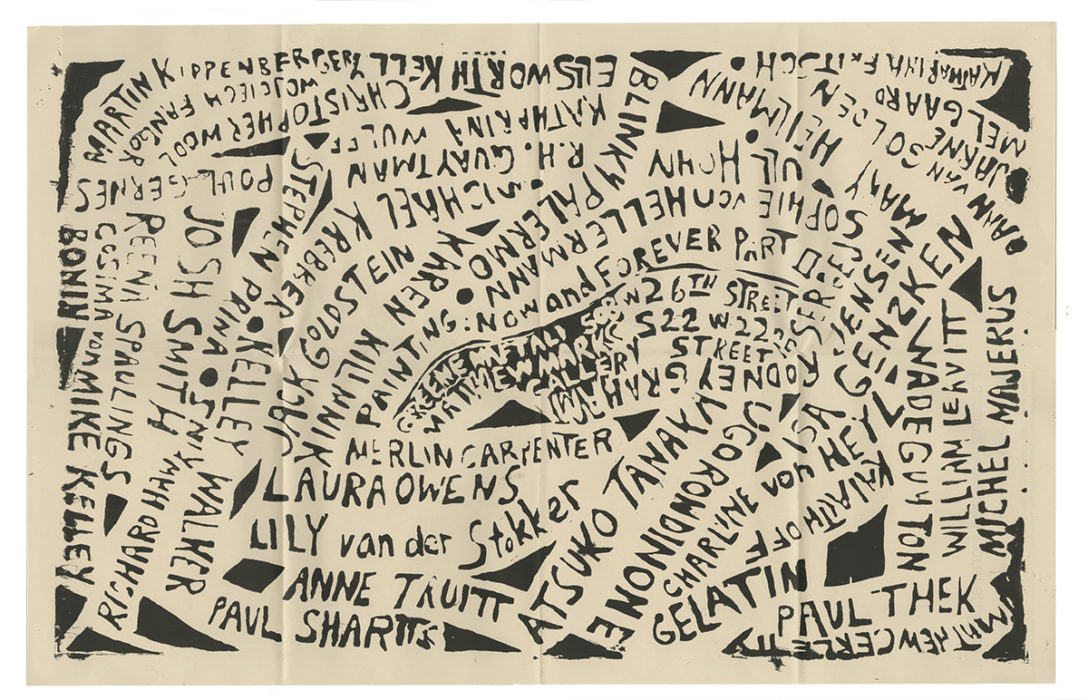 MARTIN KIPPENBERGER
ELLSWORTH KELLY
WOJCIECH FANGOR
CHRISTOPHER WOOL
POUL GERNES
KATHARINA WULFF
R.H. QUAYTMAN
MICHAEL KREBBER
STEPHEN PRINA
BLINKY PALERMO
KATHARINA FRITSCH
MARY HEILMANN
ULL HOHN
SOPHIE VON HELLERMANN
KAREN KILIMNIK
JACK GOLDSTEIN
MELGAARD
ANN VAN
PAINTING: NOW and FOREVER PART II
GREENE NAFTALI 508 W 26TH STREET
MATTHEW MARKS 522 W 22ND STREET
GALLERY
RODNEY GRAHAM
SERGEJ JENSEN
ISA GENZKEN
WADE GUYTON
WILLIAM LEAVITT
MICHEL MAJERUS
JOSH SMITH
REENA SPAULINGS
COSIMA von BONIN
MIKE KELLEY
RICHARD HAWKINS
KELLEY WALKER
MERLIN CARPENTER
LAURA OWENS
LILY van der Stokker
ANNE TRUITT
PAUL SHARITS
ATSUKO TANAKA
UGO RONDINONE
CHARLINE von HEYL
KAI ALTHOFF
GELATIN
PAUL THEK
MATHEW CERLETTY